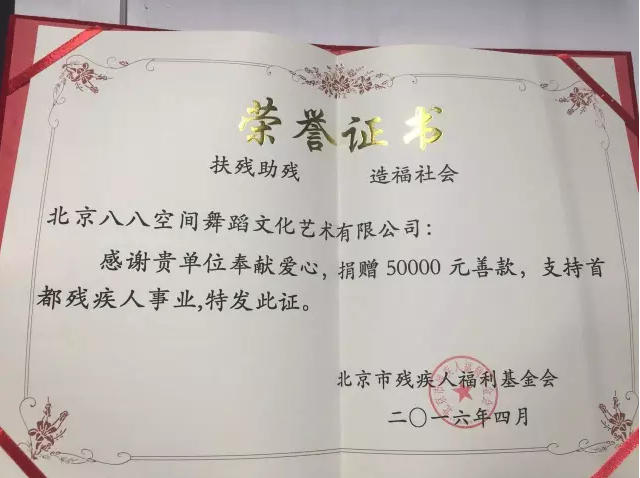 荣誉证书
扶残助残 造福社会
北京八八空间舞蹈文化艺术有限公司：
感谢贵单位奉献爱心，捐赠50000元善款，支持首
都残疾人事业,特发此证。
北京市残疾人福利基金会
二〇一六年四月